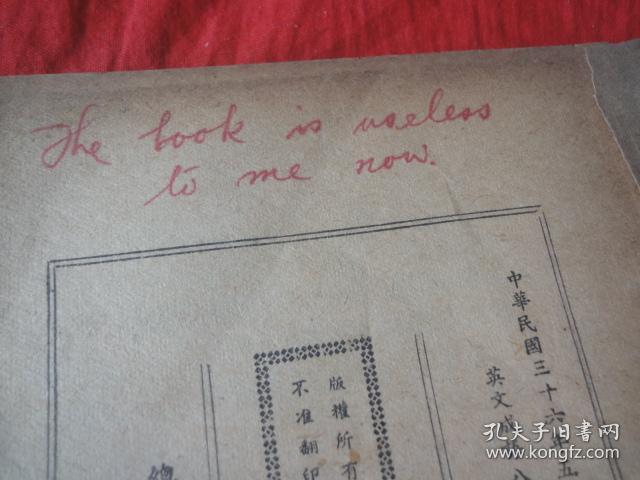 The book is useless
to me now.
中華民國三十六年五
英文成
八
版權所有
不准翻印
總
孔夫子旧书网
www.kongfz.com